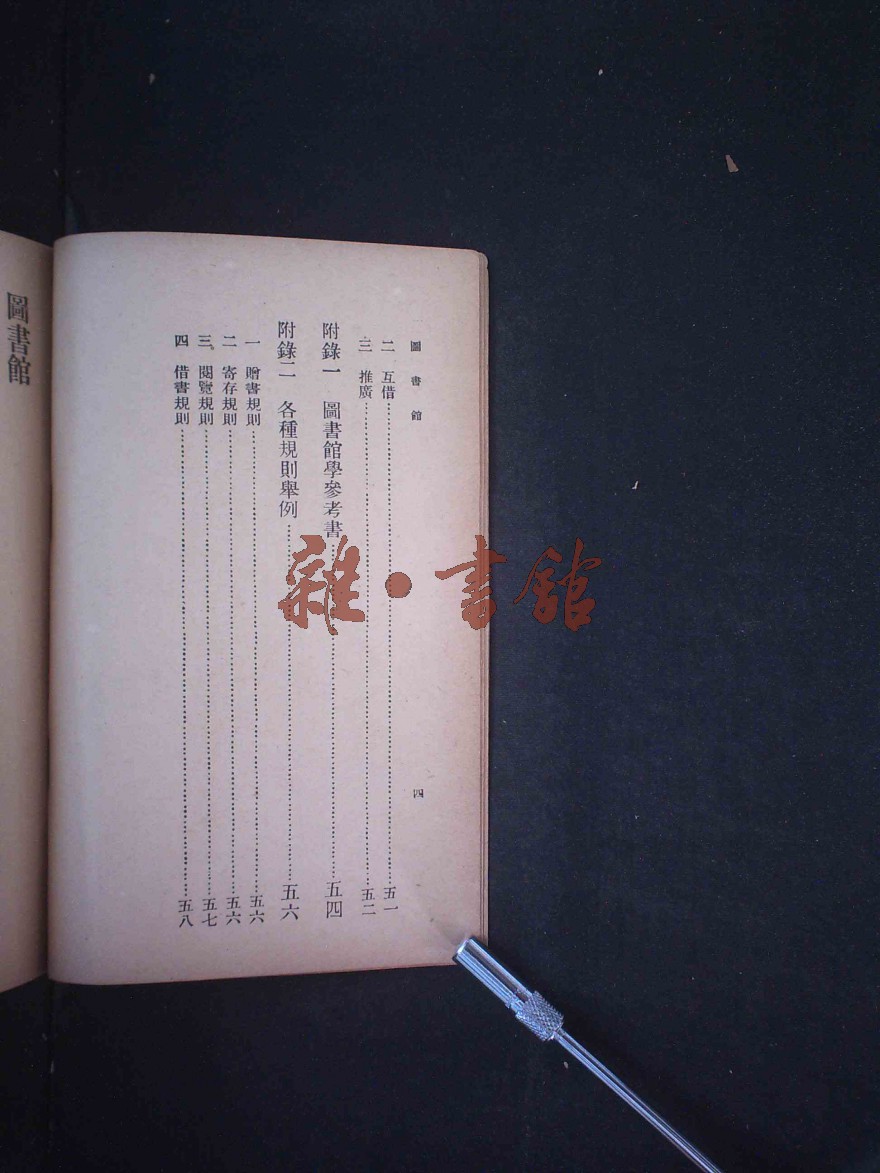 圖書館
四
二 互借……五一
三 推廣……五二
附錄一 圖書館學參考書……五四
附錄二 各種規則舉例……五六
一 贈書規則……五六
二 寄存規則……五六
三 閱覽規則……五七
四 借書規則……五八
圖書館
雜·書館